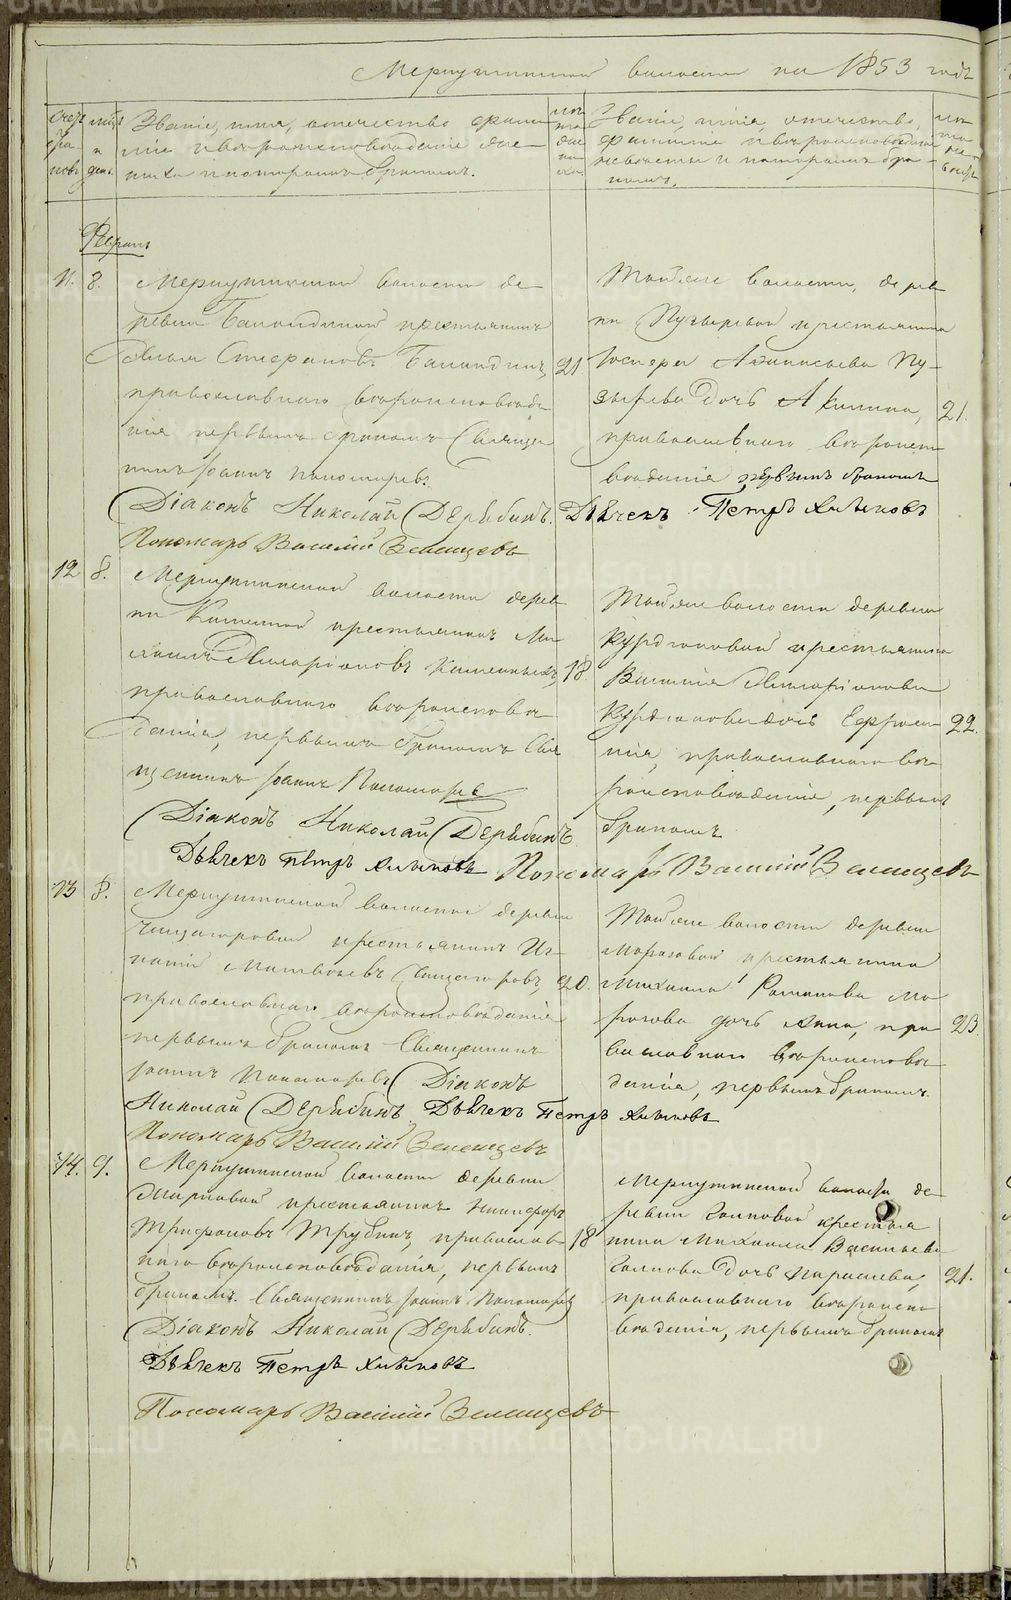 Меркушинской волости на 1853 годъ
Счетъ браковъ
мѣсяцъ и день
Званіе, имя, отчество, фами-
лія и вѣроисповѣданіе же-
ниха и которымъ бракомъ.
Званіе, имя, отчество,
фамилія и вѣроисповѣданіе
невѣсты и которымъ бра-
комъ.
Февраль
11. 8.
Меркушинской волости де-
ревни Баландиной крестьянинъ
Стефановъ Баландинъ, 21
православнаго вѣроисповѣда-
нія первымъ бракомъ Священ-
никъ Іоаннъ Пономаревъ.
Діаконъ Николай Дерябинъ.
Дьячекъ Петръ Хлыновъ
Пономарь Василій
Той же волости, дерев-
ни Пузыревой крестьянина
Аѳанасьева Пу-
зырева дочь Акилина, 21.
православнаго вѣроиспо-
вѣданія первымъ бракомъ
12 8.
Меркушинской волости дерев-
ни крестьянинъ Ми-
хаилъ Иларіоновъ 18
православнаго вѣроисповѣ-
данія, первымъ бракомъ Свя-
щенникъ Іоаннъ Пономаревъ
Діаконъ Николай Дерябинъ
Дьячекъ Петръ Хлыновъ Пономарь Василій
Той же волости деревни
крестьянина
Василія Иларіонова
дочь Ефроси- 22.
нія, православнаго вѣ-
роисповѣданія, первымъ
бракомъ
13 8.
Меркушинской волости деревни
крестьянинъ Иг-
натій Матвѣевъ 20.
православнаго вѣроисповѣданія
первымъ бракомъ Священникъ
Іоаннъ Пономаревъ Діаконъ
Николай Дерябинъ. Дьячекъ Петръ Хлыновъ
Пономарь Василій
Той же волости деревни
Морозовой крестьянина
Михаила Романова Мо-
розова дочь Анна, пра- 23
вославнаго вѣроисповѣ-
данія, первымъ бракомъ.
14. 9.
Меркушинской волости деревни
крестьянинъ Никифоръ
Трифоновъ Трубинъ, православ- 18
наго вѣроисповѣданія, первымъ
бракомъ. Священникъ Іоаннъ Пономаревъ
Діаконъ Николай Дерябинъ.
Дьячекъ Петръ Хлыновъ
Пономарь Василій
Меркушинской волости де-
ревни крестья-
нина Михаила Васильева
дочь Параскева, 21.
православнаго вѣроиспо-
вѣданія, первымъ бракомъ
METRIKI.GASO-URAL.RU